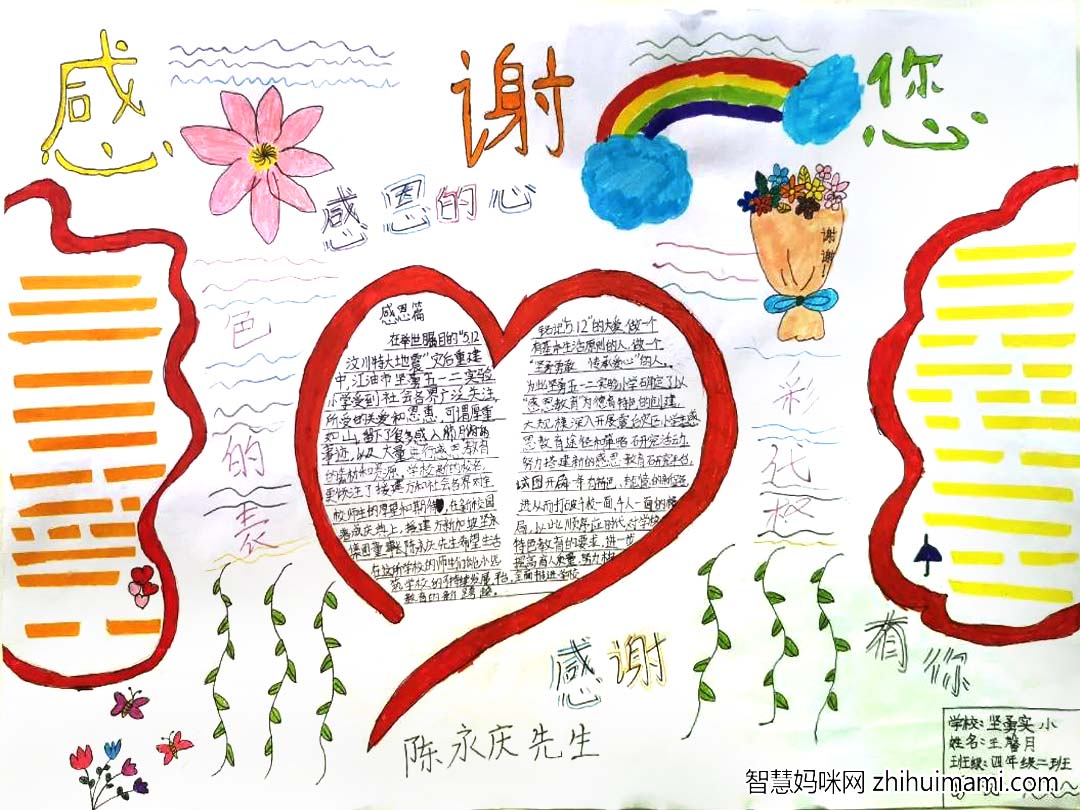 感 谢 您
感恩的心
谢
谢!
感恩篇
在举世瞩目的“5.12
汶川特大地震”灾后重建
中,江油市坚勇五一二实验
小学受到社会各界广泛关注,
所受的关爱和恩惠,可谓厚重
如山,
事迹,以及大量
学校
更倾注了援建方和社会各界对全
校师生的厚望和期待,在新校园
落成庆典上,援建方新加坡坚永
集团董事长陈永庆先生希望生活
在这所学校的师生们
学校的可持续发展
教育的新跨越。
铭记“5.12”的大爱,做一个
有基本生活原则的人,做一个
“坚勇勇敢 传承爱心”的人。
为此坚勇五一二实验小学确定了以
“感恩教育”为德育特色的创建,
大规模深入开展震后灾区小学生感
恩教育途径和策略研究活动,
努力搭建新的感恩教育研究平台,
试图开辟
进从而打破千校一面,千人一面的格
局,以此顺应时代对学校
特色教育的要求,进一步
提高育人质量,努力构
平台,全面推进学校
色
的
表
彩
代
权
感谢
陈永庆先生
着你
学校:坚勇实小
姓名:王馨月
班级:四年级二班
智慧妈咪网 zhihuimami.com